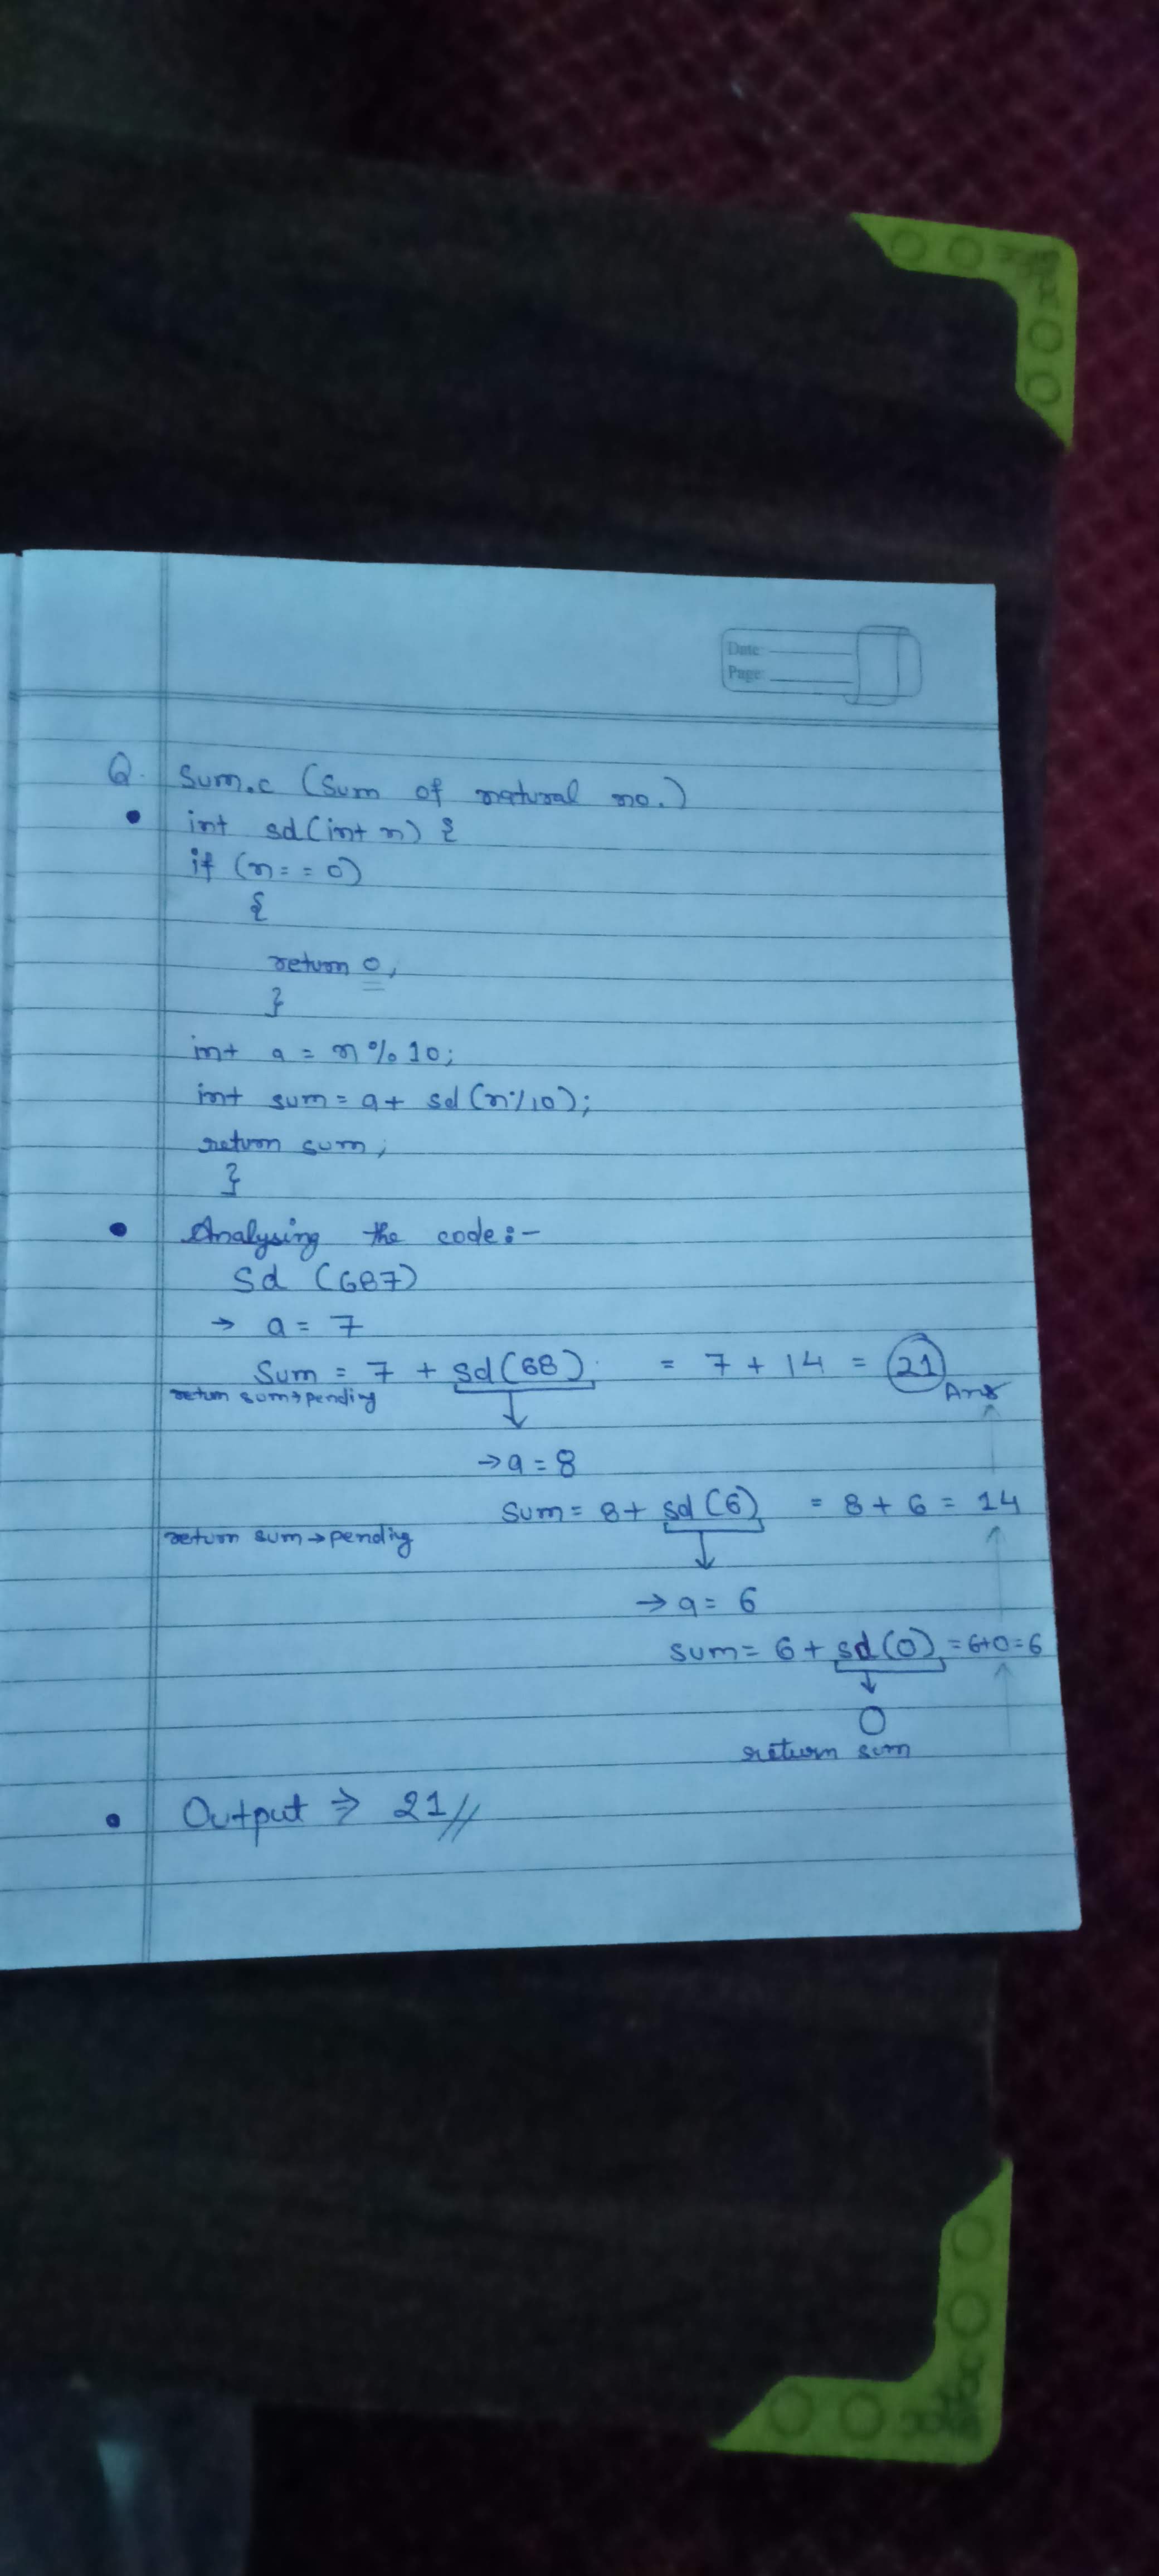 Date:
Page:
Q. Sum.c (Sum of natural no.)
• int sd(int n) {
if (n = = 0)
{
return 0,
}
int a = n % 10;
int sum = a + sd(n%10);
return sum;
}
• Analysing the code:-
Sd (687)
→ a = 7
Sum = 7 + sd(68) = 7 + 14 = 21
return sum→pending Ans
→ a = 8
Sum = 8 + sd(6) = 8 + 6 = 14
return sum→pending
→ a = 6
sum = 6 + sd(0) = 6+0=6
0
return sum
• Output ⇒ 21//